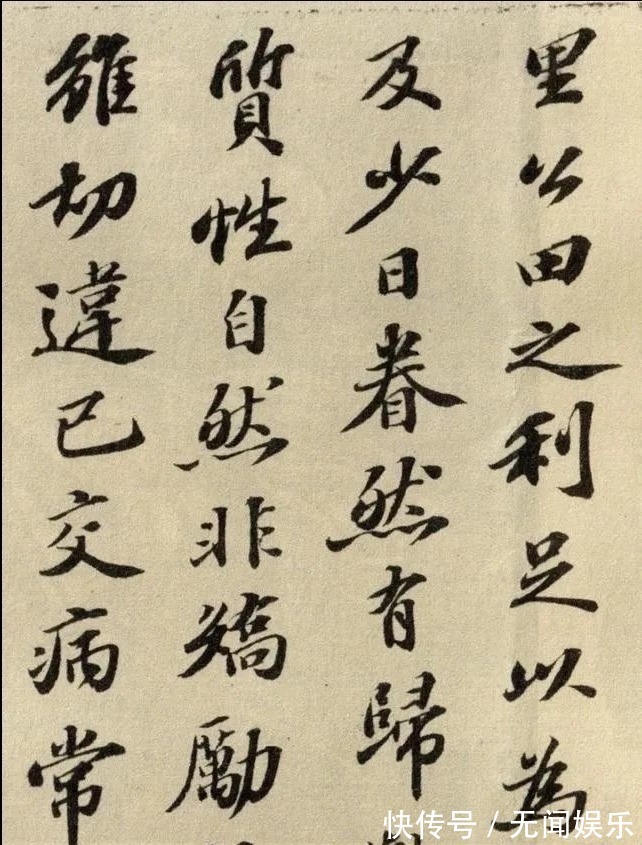 里公田之利足以為
及少日眷然有歸
質性自然非矯勵
雖切違已交病常
快传号/无闻娱乐